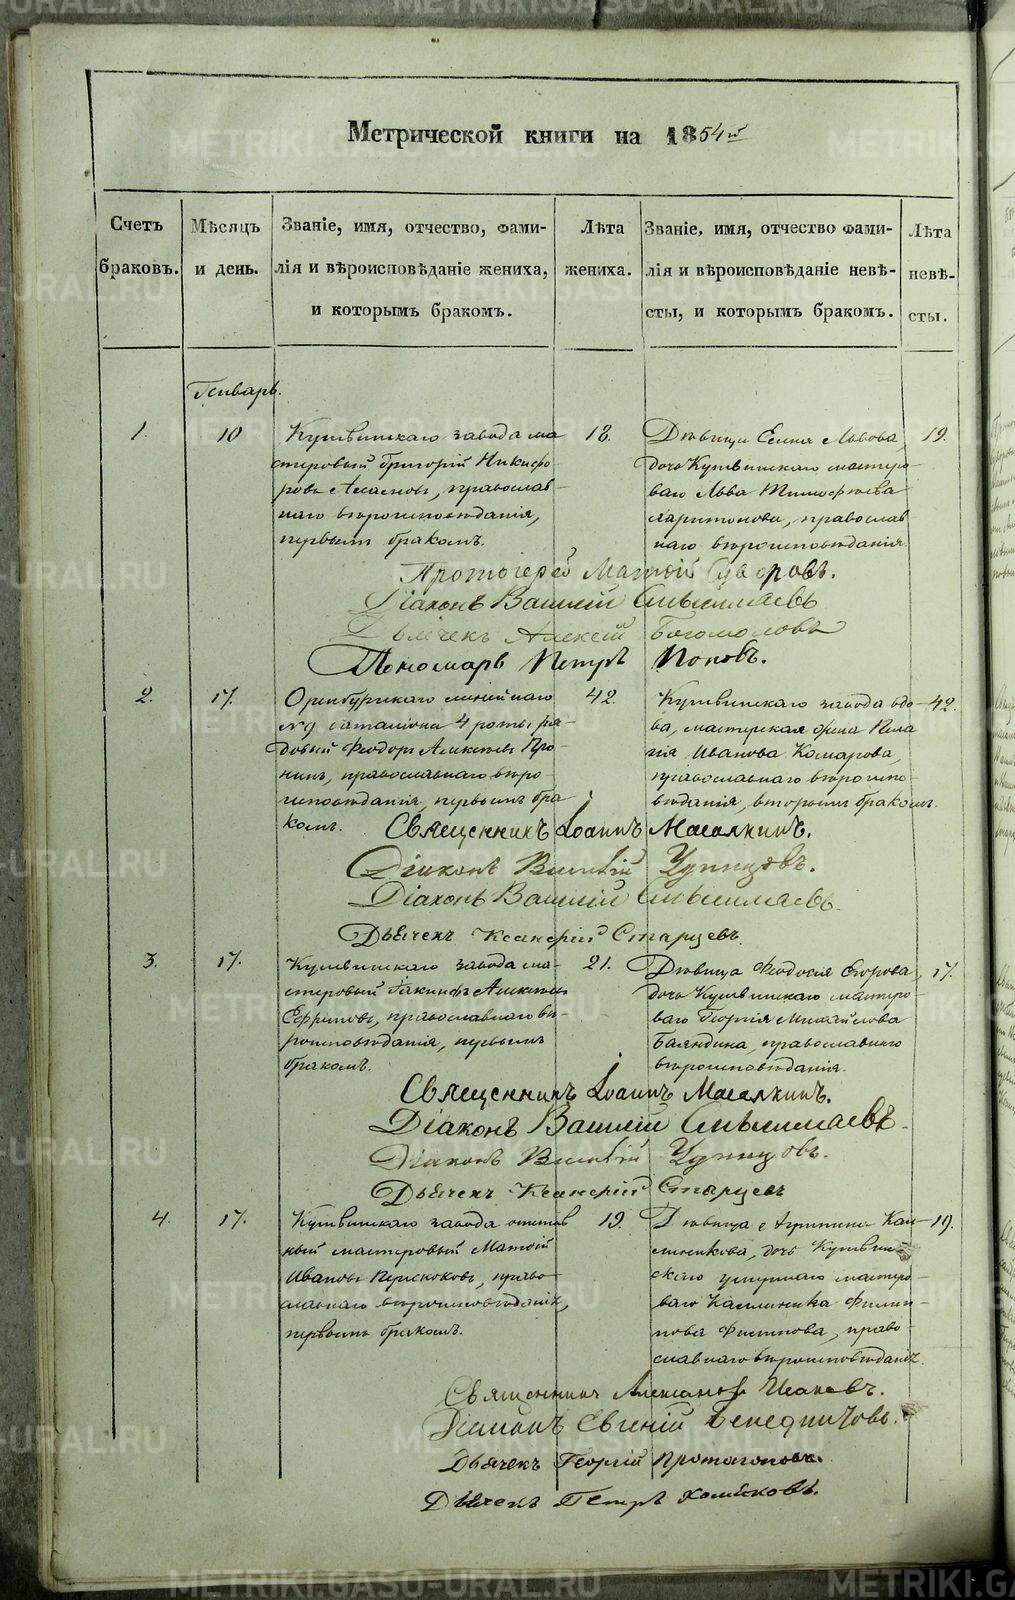 Метрической книги на 1854й
Счетъ браковъ.
Мѣсяцъ и день.
Званіе, имя, отчество, фами-
лія и вѣроисповѣданіе жениха,
и которымъ бракомъ.
Лѣта жениха.
Званіе, имя, отчество фами-
лія и вѣроисповѣданіе невѣ-
сты, и которымъ бракомъ.
Лѣта невѣ-
сты.
Генварь.
1.
10
Кушвинскаго завода ма
стеровый Григорій Никифо-
ровъ, православ-
наго вѣроисповѣданія,
первымъ бракомъ.
18.
Дѣвица Елена Львова,
дочь Кушвинскаго мастеро-
ваго Льва Тимофѣева
Харитонова, православ
наго вѣроисповѣданія.
19.
Протоіерей Матѳій
Діаконъ Василій
Дьячекъ Алексій Богомоловъ
Пономарь Петръ Поповъ.
2.
17.
Оренбургскаго линейнаго
№9 баталіона 4 роты ря-
довый Феодоръ Алексѣевъ Про-
нинъ, православнаго вѣро-
исповѣданія, первымъ бра
комъ.
42.
Кушвинскаго завода вдо-
ва, мастерская жена Пела
гія Иванова Комарова,
православнаго вѣроиспо-
вѣданія, вторымъ бракомъ.
42.
Священникъ Іоаннъ Масалкинъ.
Діаконъ Удинцовъ.
Діаконъ Василій
Дьячекъ Старцевъ.
3.
17.
Кушвинскаго завода ма-
стеровый Іакинфъ Алексѣевъ
Ефимовъ, православнаго вѣ-
роисповѣданія, первымъ
бракомъ.
21.
Дѣвица Феодосія Егорова,
дочь Кушвинскаго мастеро-
ваго Георгія Михайлова
Баяндина, православнаго
вѣроисповѣданія.
17.
Священникъ Іоаннъ Масалкинъ.
Діаконъ Василій
Діаконъ Удинцовъ.
Дьячекъ Старцевъ
4.
17.
Кушвинскаго завода отстав
ный мастеровый Матѳій
Ивановъ Перескоковъ, право-
славнаго вѣроисповѣданія,
первымъ бракомъ.
19.
Дѣвица Агрипина Кал
линикова, дочь Кушвин-
скаго умершаго мастеро-
ваго Каллиника Филип-
пова Филипова, право-
славнаго вѣроисповѣданія.
19.
Священникъ Александръ Исаковъ.
Діаконъ Евгеній Бенедиктовъ.
Дьячекъ Георгій Протопоповъ.
Дьячекъ Петръ Хомяковъ.
METRIKI.GASU-URAL.RU